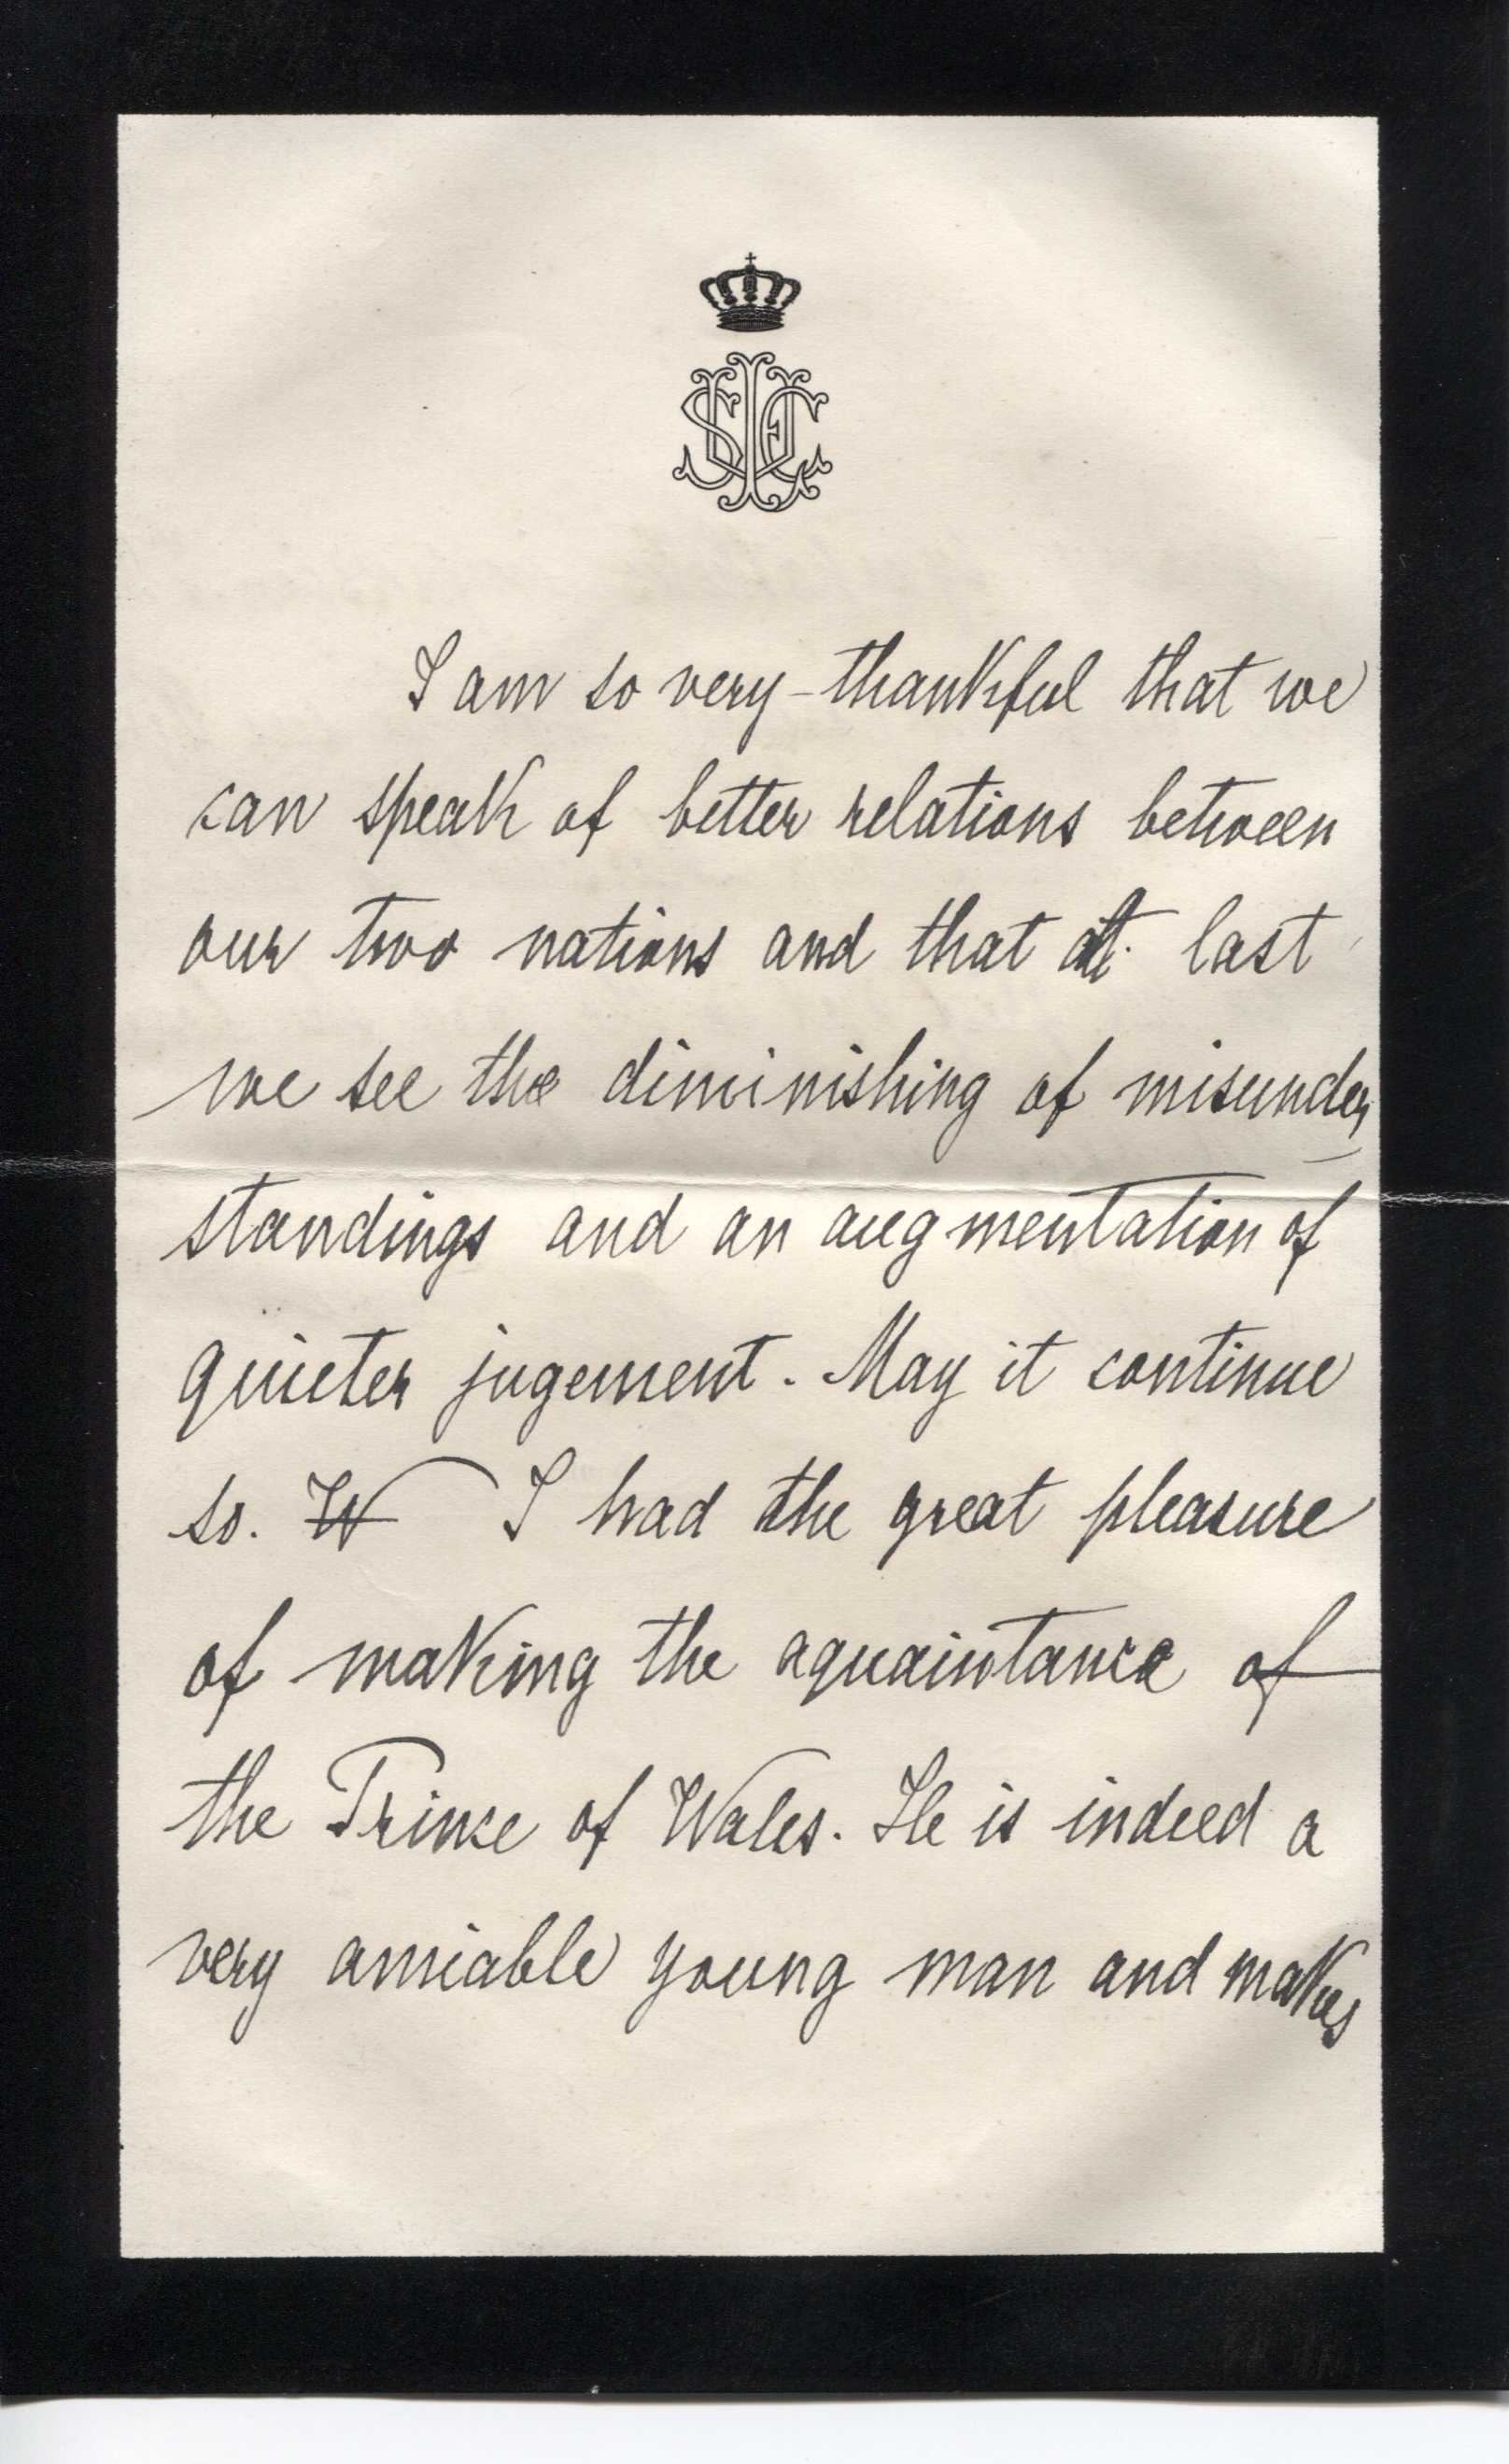 I am so very thankful that we
can speak of better relations between
our two nations and that at last
we see the diminishing of misunder
standings and an augmentation of
quieter jugement. May it continue
so. W I had the great pleasure
of making the aquaintance of
the Prince of Wales. He is indeed a
very amiable young man and makes